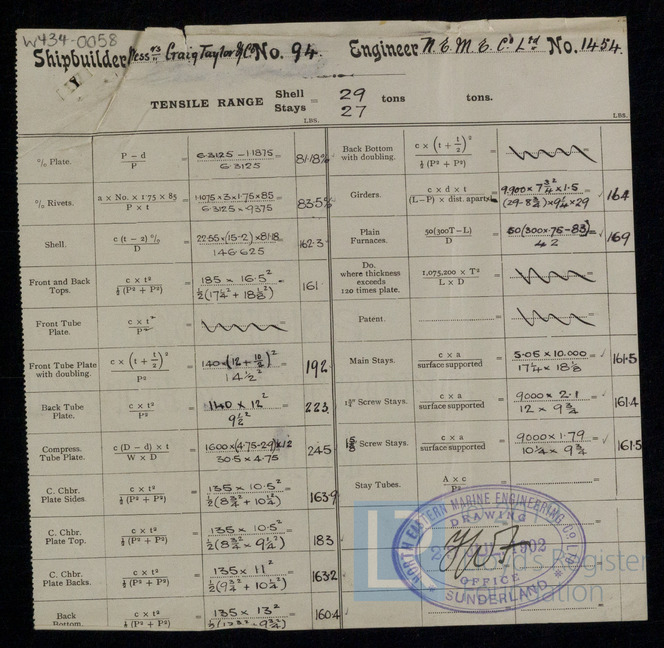 W434-0058
Shipbuilder Mess rs Craig Taylor & Co No. 94. Engineer N. E. M. E. Co Ltd No. 1454.
TENSILE RANGE Shell Stays = 29 27 tons tons.
LBS. LBS.
% Plate. P − d / P = 6.3125 − 1.1875 / 6.3125 = 81.18%
% Rivets. a × No. × 1·75 × 85 / P × t = 1.1075 × 3 × 1.75 × 85 / 6.3125 × .9375 = 83.5%
Shell. c (t − 2) % / D = 22.35 × (15-2) × 81.18 / 146.625 = 162.3
Front and Back Tops. c × t² / ½ (P² + P²) = 185 × 16.5² / ½(17¼² + 18⅛²) = 161
Front Tube Plate. c × t² / P² =
Front Tube Plate with doubling. c × (t + t/2)² / P² = 140 × (12 + 10/2)² / 14½² = 192
Back Tube Plate. c × t² / P² = 140 × 12² / 9½² = 223
Compress. Tube Plate. c (D − d) × t / W × D = 1600 × (4.75-29) × 12 / 30.5 × 4.75 = 245
C. Chbr. Plate Sides. c × t² / ½ (P² + P²) = 135 × 10.5² / ½(8¾² + 10¼²) = 163.9
C. Chbr. Plate Top. c × t² / ½ (P² + P²) = 135 × 10.5² / ½(8¾² × 9¼²) = 183
C. Chbr. Plate Backs. c × t² / ½ (P² + P²) = 135 × 11² / ½(9¾² + 10¼²) = 163.2
Back Bottom. c × t² / ½ (P² + P²) = 135 × 13² = 160.4
Back Bottom with doubling. c × (t + t/2)² / ½ (P² + P²) =
Girders. c × d × t / (L−P) × dist. apart × L = 9.900 × 7¾² × 1.5 / (29 - 8¾) × 9¼ × 29 = 164
Plain Furnaces. 50(300T − L) / D = 50(300 × .75 - 83) / 42 = 169
Do. where thickness exceeds 120 times plate. 1,075,200 × T² / L × D =
Patent. =
Main Stays. c × a / surface supported = 5.05 × 10.000 / 17¼ × 18⅛ = 161.5
Screw Stays. c × a / surface supported = 9000 × 2.1 / 12 × 9¾ = 161.4
Screw Stays. c × a / surface supported = 9000 × 1.79 / 10¼ × 9¾ = 161.5
Stay Tubes. A × c / P² =
NORTH EASTERN MARINE ENGINEERING CO LTD
DRAWING
1902
OFFICE
SUNDERLAND
LR
Lloyd's Register
Foundation